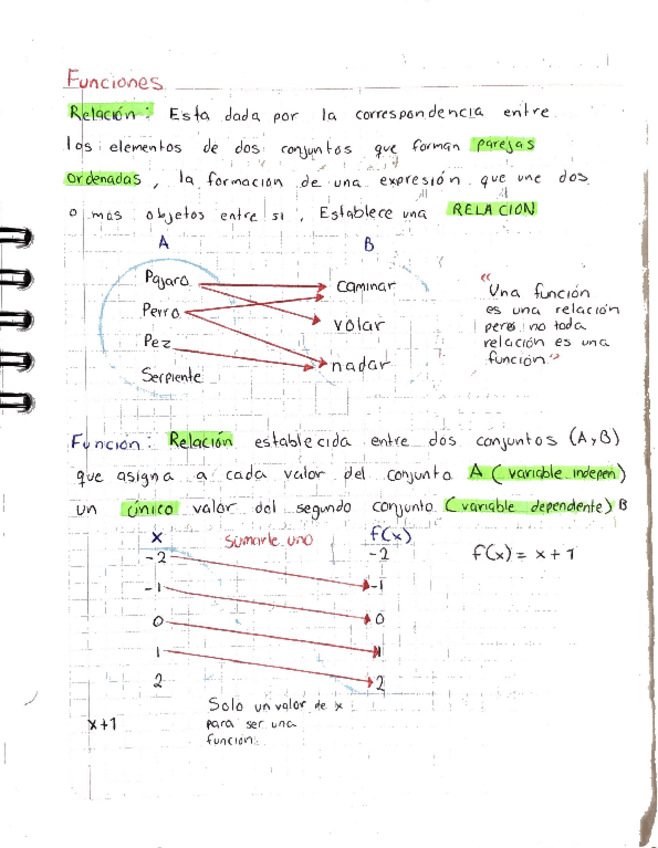 Funciones
Relación: Esta dada por la correspondencia entre
los elementos de dos conjuntos que forman parejas
ordenadas, la formacion de una expresión que une dos
o mas objetos entre si, Establece una RELACION
A B
Pajaro caminar
Perro volar
Pez nadar
Serpiente
"Una función
es una relación
pero no toda
relación es una
función"
Función: Relación establecida entre dos conjuntos (A,B)
que asigna a cada valor del conjunto A (variable indepen)
un único valor del segundo conjunto (variable dependente) B
x Sumarle uno f(x)
-2 -2 f(x) = x + 1
-1 -1
0 0
1 1
2 2
Solo un valor de x
para ser una
función.
x+1